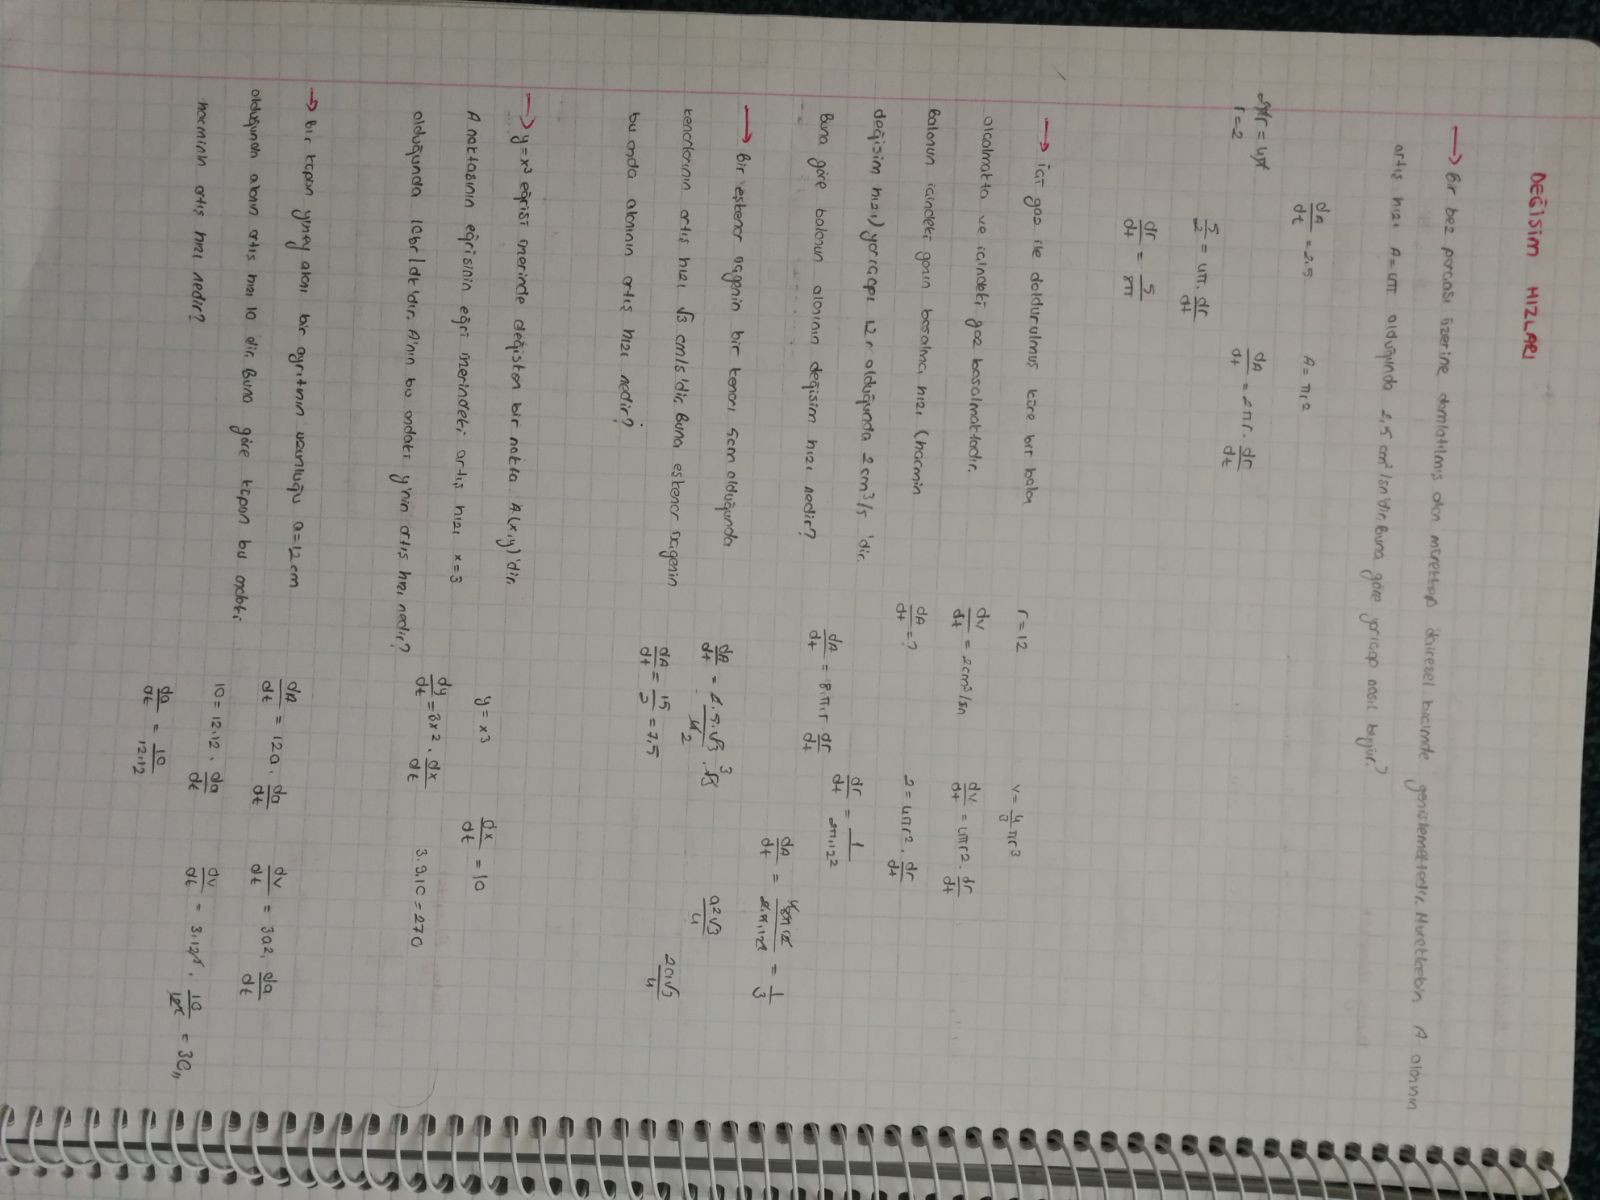 DEĞİSİM HIZLARI
→ Bir bez parçası üzerine damlatılmış olan mürekkep dairesel biçimde genişlemektedir. Mürekkebin A alanının
artış hızı A=4π olduğunda 2,5 cm²/sn'dir. Buna göre yarıçap nasıl büyür?
dA/dt = 2.5    A = πr²
2πr = 4π
r=2
dA/dt = 2πr. dr/dt
5/2 = 4π. dr/dt
dr/dt = 5/8π
→ İçi gaz ile doldurulmuş küre bir balon
alçalmakta ve içindeki gaz boşalmaktadır.
Balonun içindeki gazın boşalma hızı (hacmin
değişim hızı) yarıçapı 12r olduğunda 2cm³/s 'dir.
Buna göre balonun alanının değişim hızı nedir?
r=12    V= 4/3 πr³
dv/dt = 2cm³/sn    dv/dt = 4πr². dr/dt
dA/dt = ?    2 = 4πr². dr/dt
dA/dt = 8.π.r dr/dt    dr/dt = 1/2π.12²
dA/dt = 8π12/2.π.12² = 1/3
→ Bir eşkenar üçgenin bir kenarı 5cm olduğunda
kenarlarının artış hızı √3 cm/s'dir. Buna eşkenar üçgenin
bu anda alanının artış hızı nedir?
dA/dt = 2.5.√3/4 2 .√3 3    a²√3/4
dA/dt = 15/2 = 7,5    2a√3/4
→ y=x³ eğrisi üzerinde değişken bir nokta A(x,y)'dir.
A noktasının eğrisinin eğri üzerindeki artış hızı x=3
olduğunda 10br/dt'dir. A'nın bu andaki y'nin artış hızı nedir?
y= x3    dx/dt = 10
dy/dt = 3x². dx/dt    3.9.10=270
→ Bir küpün yüzey alanı bir ayrıtının uzunluğu a=12cm
olduğunda alanın artış hızı 10 dir. Buna göre küpün bu andaki
hacminin artış hızı nedir?
dA/dt = 12a. da/dt    dv/dt = 3a². da/dt
10=12.12. da/dt    dv/dt = 3.12². 10/12² = 30,,
da/dt = 10/12.12